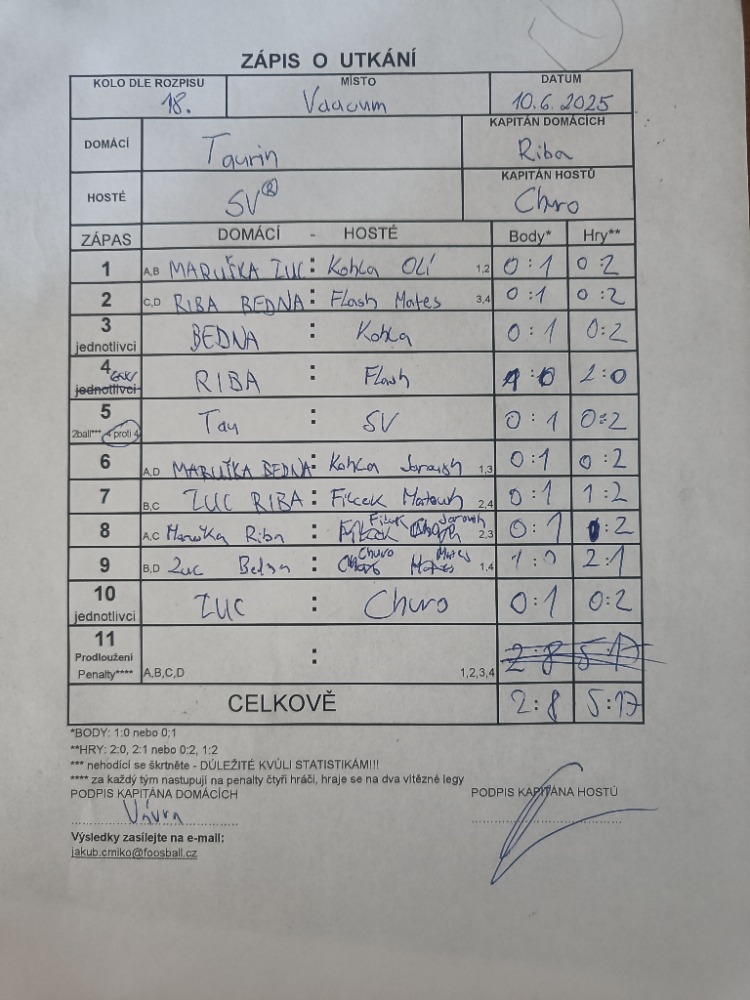 ZÁPIS O UTKÁNÍ
KOLO DLE ROZPISU MÍSTO DATUM
18. Vaacum 10.6.2025
DOMÁCÍ Taurin KAPITÁN DOMÁCÍCH Riba
HOSTÉ SV® KAPITÁN HOSTŮ Churo
ZÁPAS DOMÁCÍ - HOSTÉ Body* Hry**
1 A,B MARUŠKA ZUC : Kobla Olí 1,2 0:1 0:2
2 C,D RIBA BEDNA : Flash Mates 3,4 0:1 0:2
3 jednotlivci BEDNA : Kobla 0:1 0:2
4 jednotlivci RIBA : Flash 1:0 2:0
5 2ball*** 4 proti 4 Tau : SV 0:1 0:2
6 A,D MARUŠKA BEDNA : Kobla Jaroush 1,3 0:1 0:2
7 B,C ZUC RIBA : Filcek Matoush 2,4 0:1 1:2
8 A,C Maruška Riba : Filcek Jaroush 2,3 0:1 0:2
9 B,D Zuc Bedna : Churo Mates 1,4 1:0 2:1
10 jednotlivci ZUC : Churo 0:1 0:2
11 Prodloužení Penalty**** A,B,C,D : 1,2,3,4 2:8 5:17
CELKOVĚ 2:8 5:17
*BODY: 1:0 nebo 0;1
**HRY: 2:0, 2:1 nebo 0:2, 1:2
*** nehodící se škrtněte - DŮLEŽITÉ KVŮLI STATISTIKÁM!!!
**** za každý tým nastupují na penalty čtyři hráči, hraje se na dva vítězné legy
PODPIS KAPITÁNA DOMÁCÍCH PODPIS KAPITÁNA HOSTŮ
Vávra
Výsledky zasílejte na e-mail:
jakub.crniko@foosball.cz